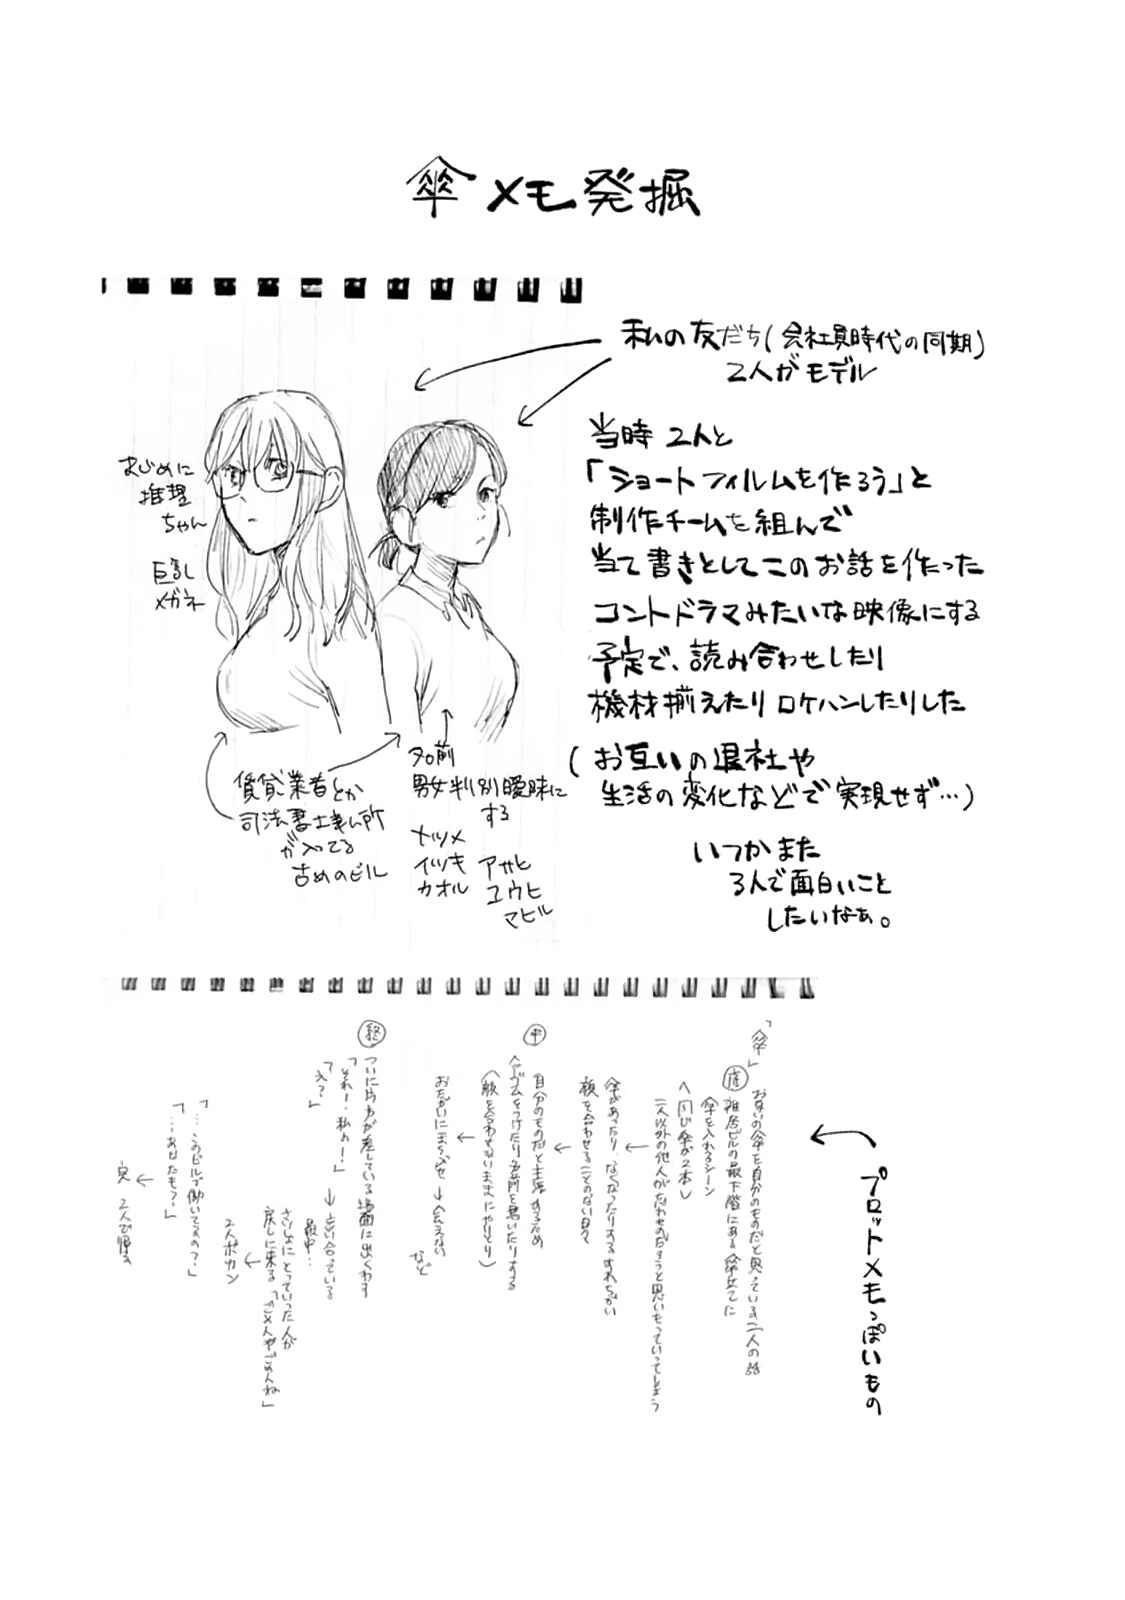 傘メモ発掘
私の友だち(会社員時代の同期)
2人がモデル
当時 2人と
「ショートフィルムを作ろう」と
制作チームを組んで
当て書きとしてこのお話を作った
コントドラマみたいな映像にする
予定で、読み合わせしたり
機材揃えたりロケハンしたりした
(お互いの退社や
生活の変化などで実現せず…)
いつかまた
3人で面白いこと
したいなぁ。
まじめに
推理
ちゃん
巨乳
メガネ
賃貸業者とか
司法書士事ム所
が入ってる
古めのビル
名前
男女判別曖昧に
する
ナツメ
イツキ
カオル
アサヒ
ユウヒ
マヒル
プロットメモっぽいもの
「傘」
お互いの傘を自分のものだと思っている二人の話
雑居ビルの最下階にある傘立てに
傘を入れるシーン
(同じ傘が2本)
二人以外の他人がだれかのだろうと思いもっていってしまう
傘があったり、なくなったりするすれちがい
顔を合わせることのない日々
中
自分のものだと主張するため
ヘアゴムをつけたり名前を書いたりする
(顔を合わせないままにやりとり)
おたがいにまちぶせ→会えない
など
終
ついに片方が差している場面に出くわす
「それー、私のー!」
→言い合っている
最中…
「え?」
さいしょにとっていった人が
戻しに来る「ごめんやでごめんね」
2人ポカン
「…このビルで働いてるの?」
「…あなたも?」
2人で帰る